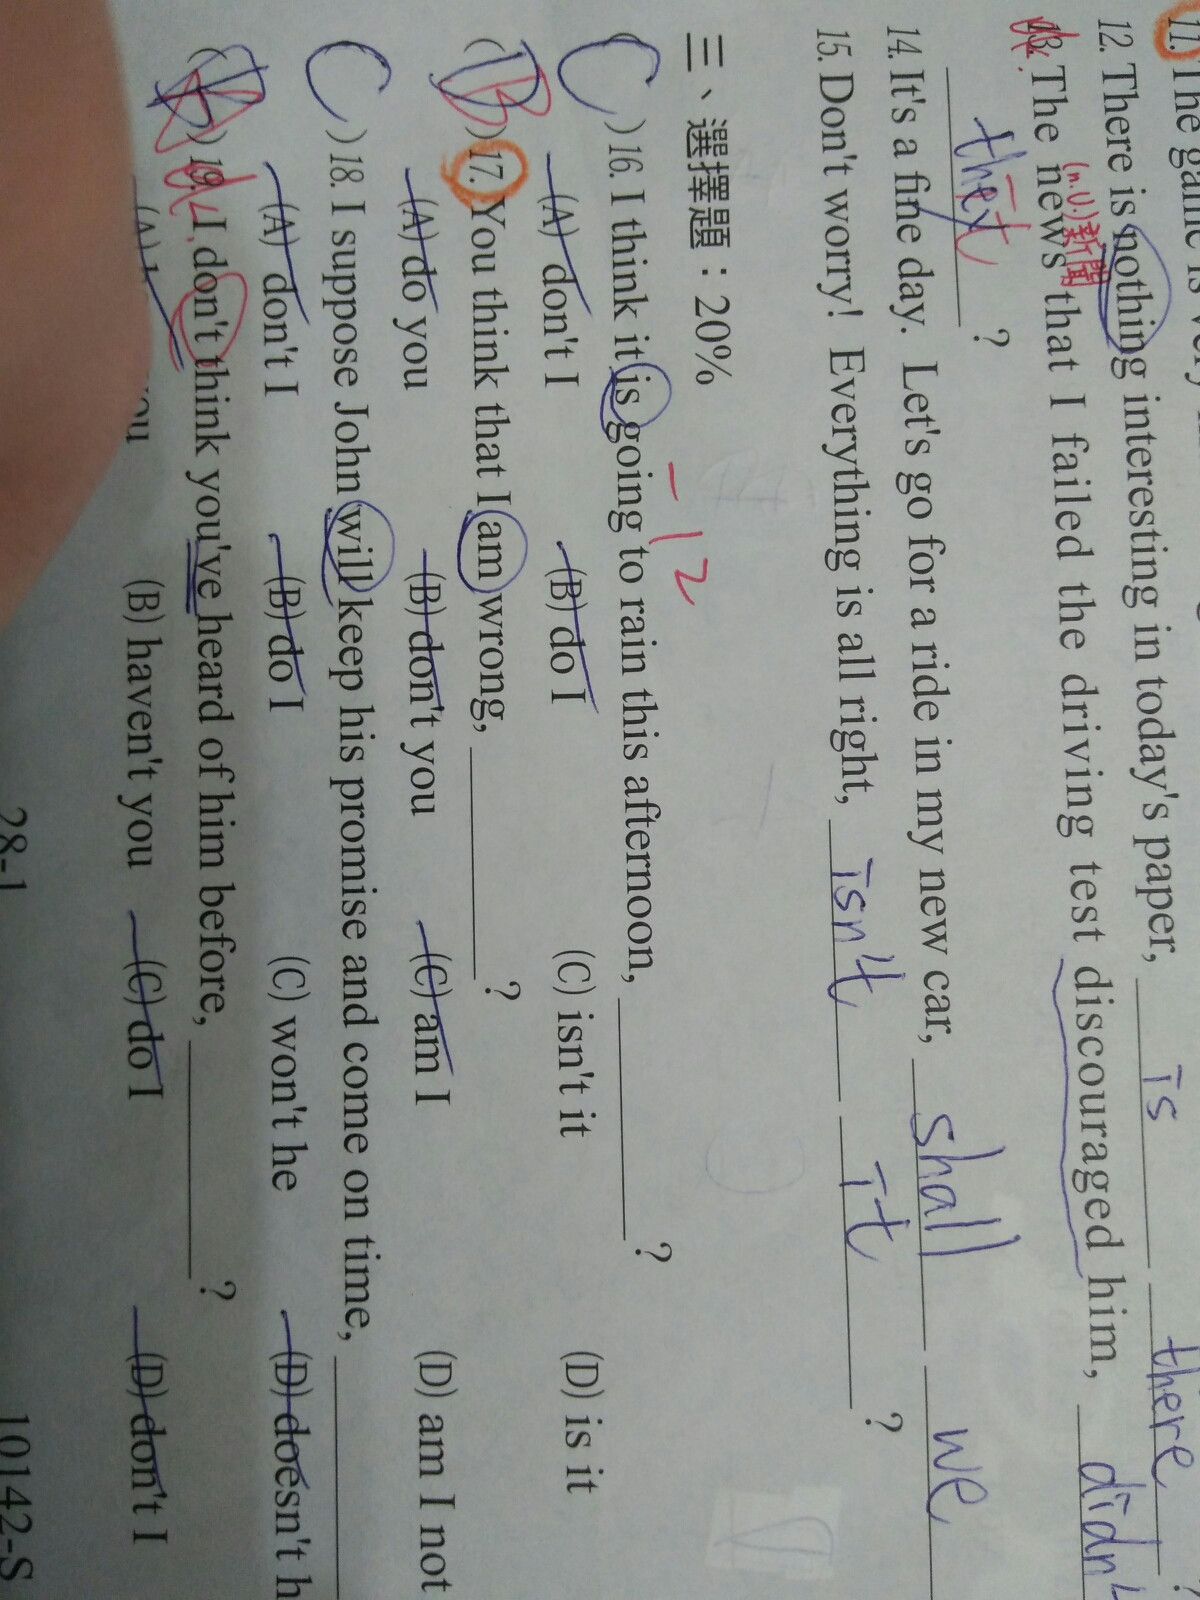 11. The game is
12. There is nothing interesting in today's paper, is there ?
13. The news that I failed the driving test discouraged him, didn't
(n.U.)新聞
?
14. It's a fine day. Let's go for a ride in my new car, shall we
15. Don't worry! Everything is all right, isn't it ?
三、選擇題：20% -12
( C ) 16. I think it is going to rain this afternoon, ?
(A) don't I (B) do I (C) isn't it (D) is it
( B ) 17. You think that I am wrong, ?
(A) do you (B) don't you (C) am I (D) am I not
( C ) 18. I suppose John will keep his promise and come on time,
(A) don't I (B) do I (C) won't he (D) doesn't h
( A ) 19. I don't think you've heard of him before, ?
(A) you (B) haven't you (C) do I (D) don't I
28-1 10142-S